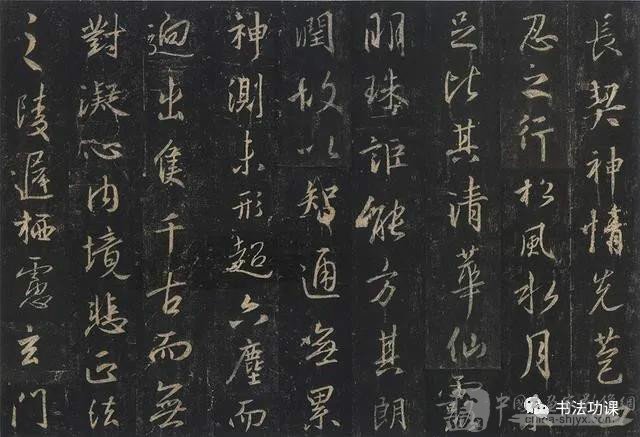 長契神情先苞
忍之行松風水月
足比其清華仙露
明珠詎能方其朗
潤故以智通無累
神測未形超六塵而
迥出隻千古而無
對凝心內境悲正法
之陵遲栖慮玄門
书法功课